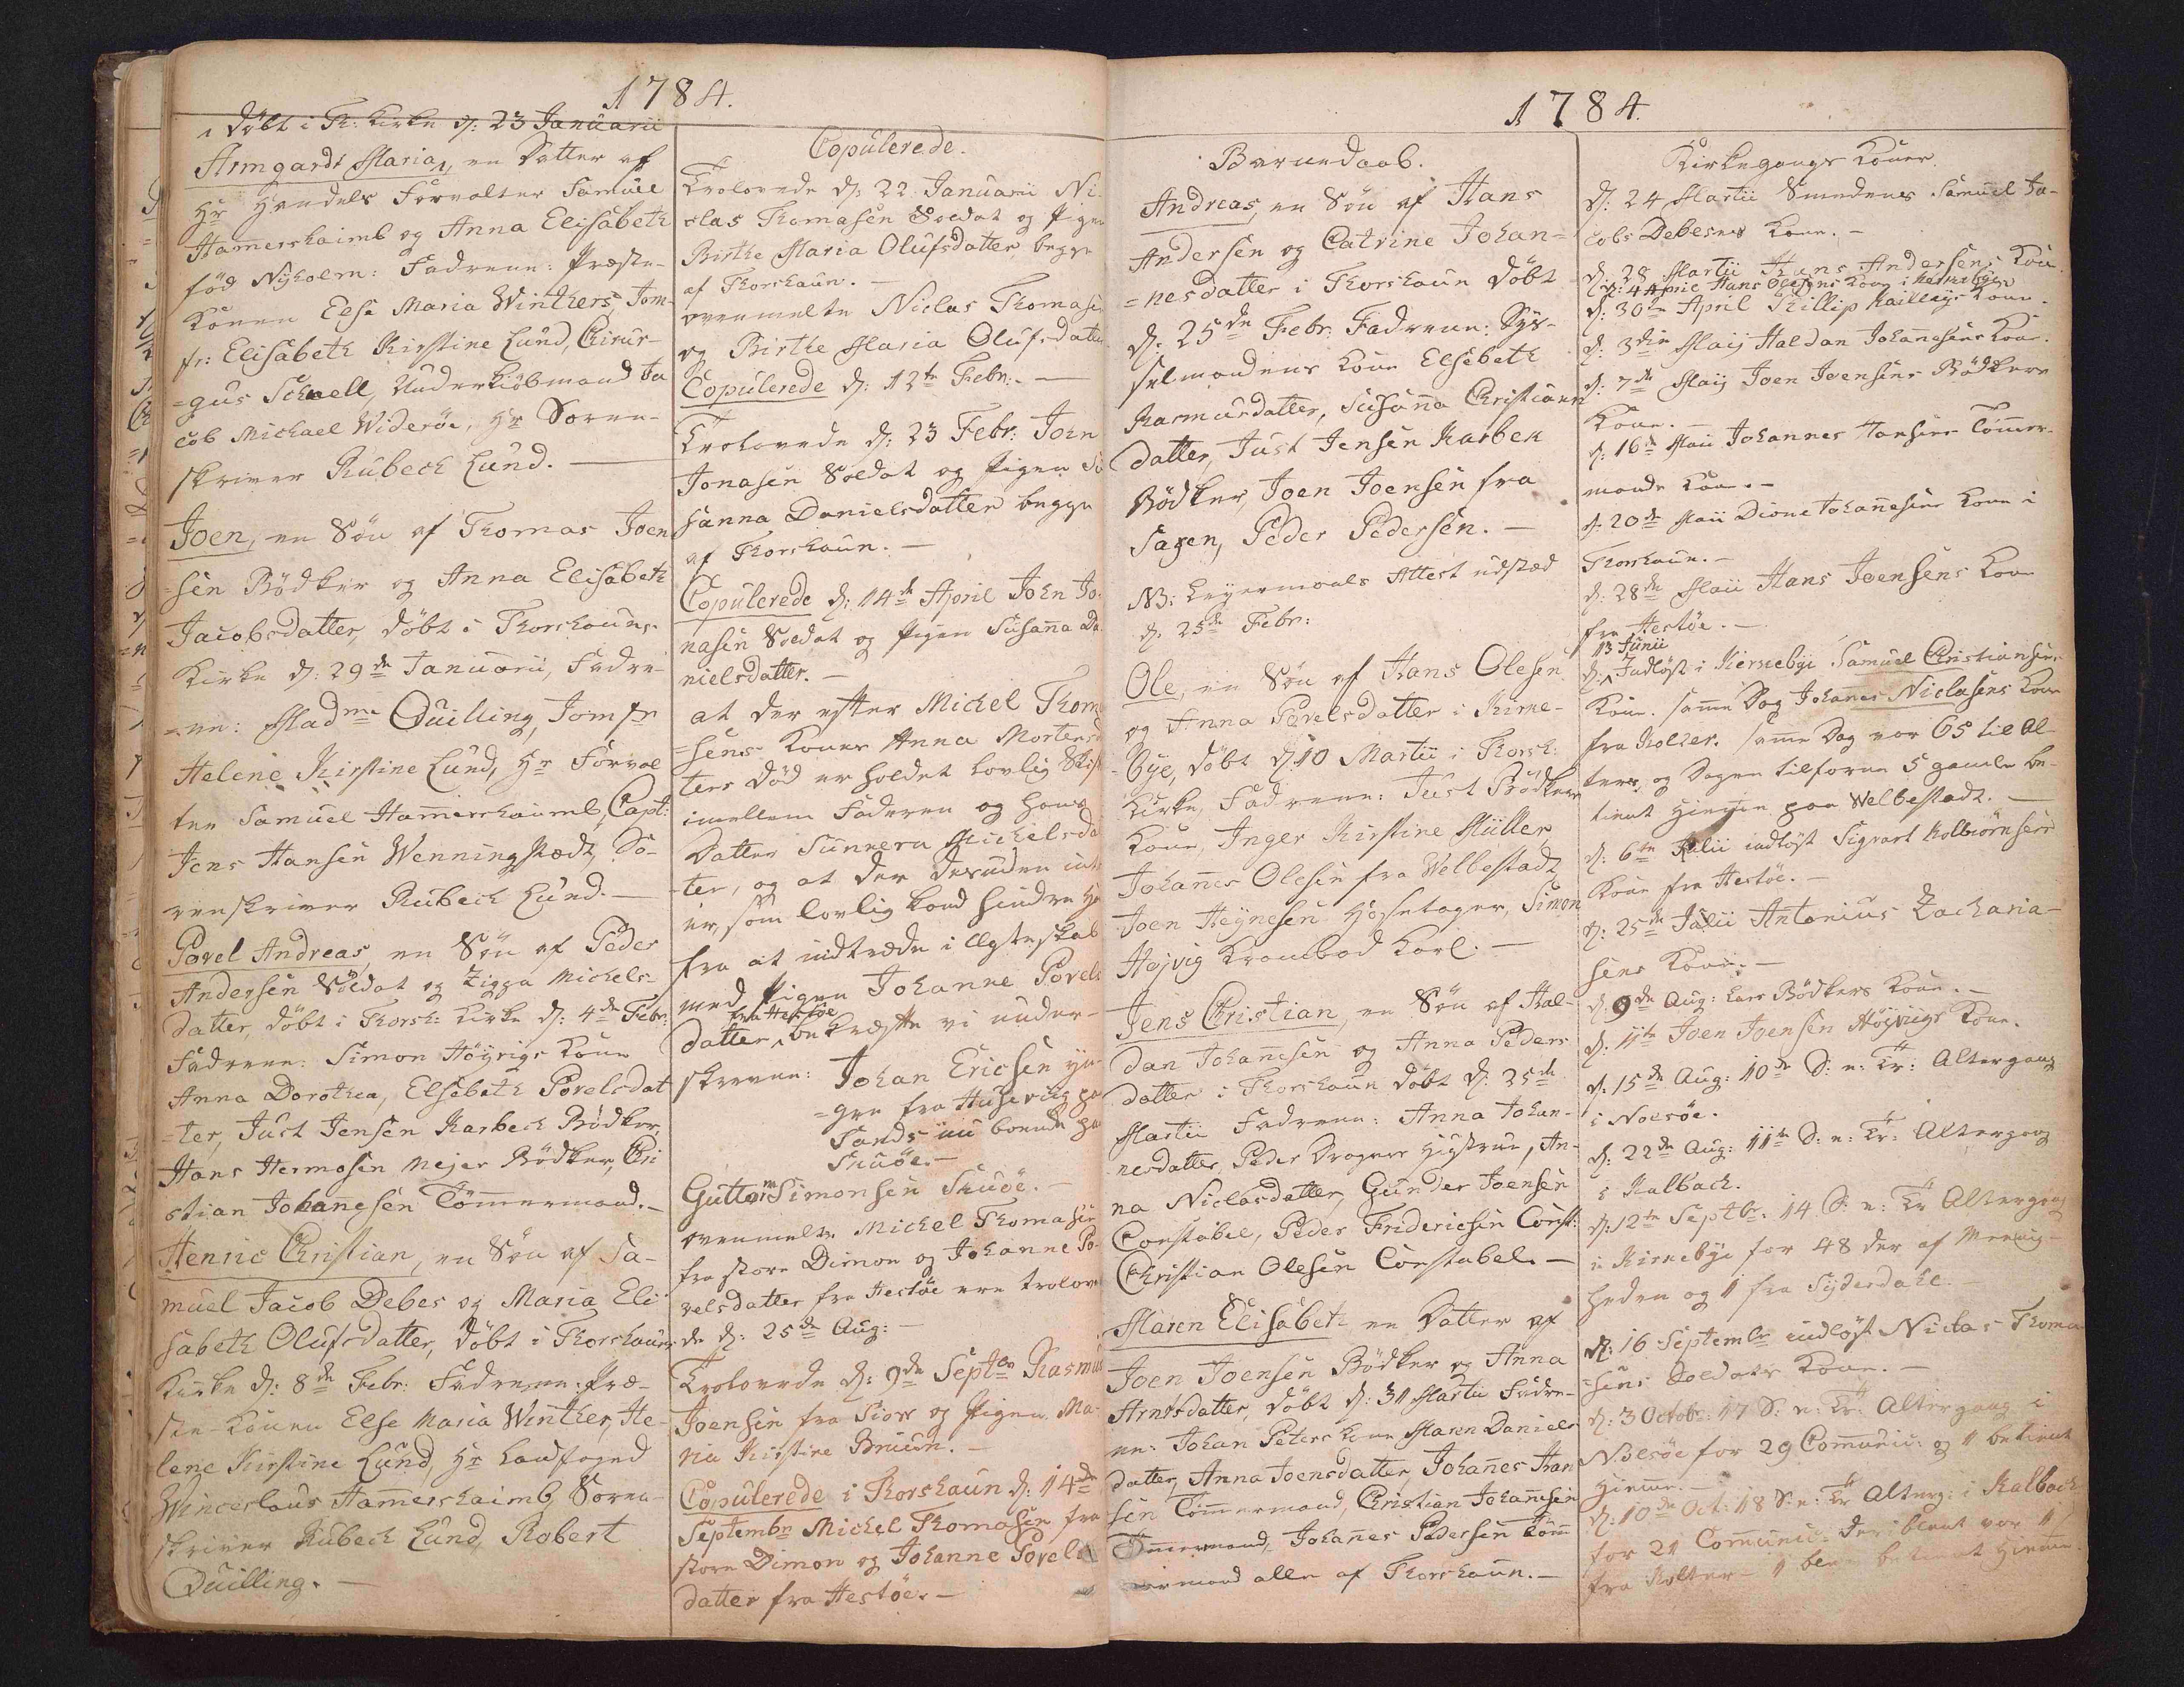 1784.
˄ døbt i Th: Kirke d: 23 Januarii
Armgardt Maria, ˄ en Datter af
Hr Handels Forvalter Samuel
Hamershaimb og Anna Elisabeth
fød Nyholm: Faderne: Præste-
Konen Else Maria Winthers, Jom-
fr: Elisabeth Kirstine Lund, Chirur-
=gus Schnell, Underkiøbmand Ja
cob Michael Widerøe, Hr Soren-
skriver Rubech Lund.
Joen, en Søn af Thomas Joen
=sen Bødker og Anna Elisabeth
Jacobsdatter, døbt i Thorshauns
Kirke d: 29de Januarii, Fadre-
=ne: Madme Quilling, Jomfr
Helene Kirstine Lund, Hr Forval
ter Samuel Hamershaimb, Capt:
Jens Hansen Wenningstædt, So-
renskriver Rubech Lund.
Povel Andreas, en Søn af Peder
Andersen Soldat og Zigga Michels-
datter, døbt i Thorsh: Kirke d: 4de Febr:
Fadrene: Simon Höyvigs Kone
Anna Dorothea, Elsebeth Povelsdat
=ter, Just Jensen Karbech Bødker,
Hans Hermosen Mejer Bødker, Chri
stian Johannesen Tømmermand.
Henric Christian, en Søn af Sa-
muel Jacob Debes og Maria Eli
sabeth Olufsdatter, døbt i Thorshauns
Kirke d: 8de Febr: Fadrene: Præ-
ste-Konen Else Maria Winther, He-
lene Kirstine Lund, Hr Landfoged
Winceslaus Hamershaimb, Soren-
skriver Rubech Lund, Robert
Quilling.
Copulerede.
Trolovede d: 22 Januarii Ni-
clas Thomasen Soldat og Pigen
Birthe Maria Olufsdatter, begge
af Thorshaun.
ovenmelte Niclas Thomasen
og Birthe Maria Olufsdatter
Copulerede d: 12te Febr:
Trolovede d: 23 Febr: John
Jonasen Soldat og Pigen Su
sanna Danielsdatter begge
af Thorshaun.
Copulerede d: 14de April John Jo-
nasen Soldat og Pigen Susanna Da
nielsdatter.
at der efter Michel Thom
=sens Kones Anna Mortensd
ters Død er holdet lovlig Skift
imellem Faderen og hans
Datter Sunneva Michelsda
ter, og at der desuden int
er, som lovlig kand hindre ham
fra at indtræde i Ægteskab
med Pigen Johanne Povels
fra Hestøe
datter ˄ bekræfte vi under-
skrevne: Johan Ericsen yn-
=gre fra Husevig paa
Sands nu boende paa
Skuöe.
Guttorm Simonsen Skuöe.
ovenmelte Michel Thomasen
fra store Dimon og Johanne Po-
velsdatter fra Hestöe ere trolove
de d: 25de Aug:
Trolovede d: 9de Septbr Rasmus
Joensen fra Siow og Pigen Ma-
ria Kirstine Bruun.
Copulerede i Thorshaun d: 14de
Septembr Michel Thomasen fra
store Dimon og Johanne Povels
datter fra Hestöe.
1784.
Barnedaab.
Andreas, en Søn af Hans
Andersen og Catrine Johan=
=nesdatter i Thorshaun døbt
d: 25de Febr: Fadrene: Sys-
selmandens Kone Elsebeth
Rasmusdatter, Susanna Christians
datter, Just Jensen Karbek
Bødker, Joen Joensen fra
Saxen, Peder Pedersen.
NB: Leyermaals Attest udstæd
d: 25de Febr:
Ole, en Søn af Hans Olesen
og Anna Povelsdatter i Kirke-
bye, døbt d: 10 Martii i Thorsh:
Kirke, Fadrene: Just Bødkers
Kone, Inger Kirstine Müller,
Johannes Olesen fra Welbestadt,
Joen Heynesen Hosetager, Simon
Højvig Krambod Karl.
Jens Christian, en Søn af Hal-
dan Johannesen og Anna Peders
datter i Thorshaun døbt d: 25de
Martii Fadrene: Anna Johan-
nesdatter, Peder Dragers Hustrue, An-
na Niclasdatter, Gunder Joensen
Constabel, Peder Fridericsen Const:
Christian Olesen Constabel.
Maren Elisabeth en Datter af
Joen Joensen Bødker og Anna
Arntsdatter, døbt d: 31 Martii Fadre-
ne: Johan Peters Kone Maren Daniels
datter, Anna Joensdatter, Johannes Han
sen Tømmermand, Christian Johannesen
Tømmermand, Johannes Pedersen Tøm
mermand alle af Thorshaun.
Kirkegangs Koner.
d: 24 Martii Smedens Samuel Ja-
cobs Debesens Kone.
d: 28 Martii Hans Andersens Kone
d: 4 April Hans Olesens Kone i Kirkebye
d: 30te April Phillip Kaillays Kone.
d: 3die Maij Haldan Johannesens Kone.
d: 7de Maij Joen Joensens Bødkers
Kone.
d: 16de Maii Johannes Hansens Tømmer-
mands Kone.
d: 20de Maii Dione Johannesens Kone i
Thorshaun.
d: 28de Maii Hans Joensens Kone
fra Hestöe.
13 Junii
d: ˄ Indløst i Kirkebye Samuel Christiansens
Kone. samme Dag Johannes Niclasens Kone
fra Kolter. samme Dag var 65 til Al-
ters, og Dagen tilforne 5 gamle be-
tient hjemme paa Welbestadt.
d: 6te Julii indløst Sigvart Kolbiørnsens
Kone fra Hestöe.
d: 25de Julii Antonius Zacharia-
sens Kone.
d: 9de Aug: Lars Bødkers Kone.
d: 11te Joen Joensen Höjvigs Kone.
d: 15de Aug: 10de S: e: Tr: Altergang
i Nolsöe.
d: 22de Aug: 11te S: e: Tr: Altergang
i Kalbach.
d: 12te Septbr: 14 S: e: Tr Altergang
i Kirkebye for 48 der af Menig-
heden og 1 fra Syderdahl.
d: 16 Septembr indløst Niclas Thoma
=sens Soldats Kone.
d: 3 Octobr: 17 S: e: Tr: Altergang i
Nolsöe for 29 Comunic: og 1 betient
hjemme.
d: 10de Oct: 18 S: e: Tr Alterg: i Kalbach
for 21 Comunic: deriblant var 1
fra Kolter 1 blev betient hjemme.